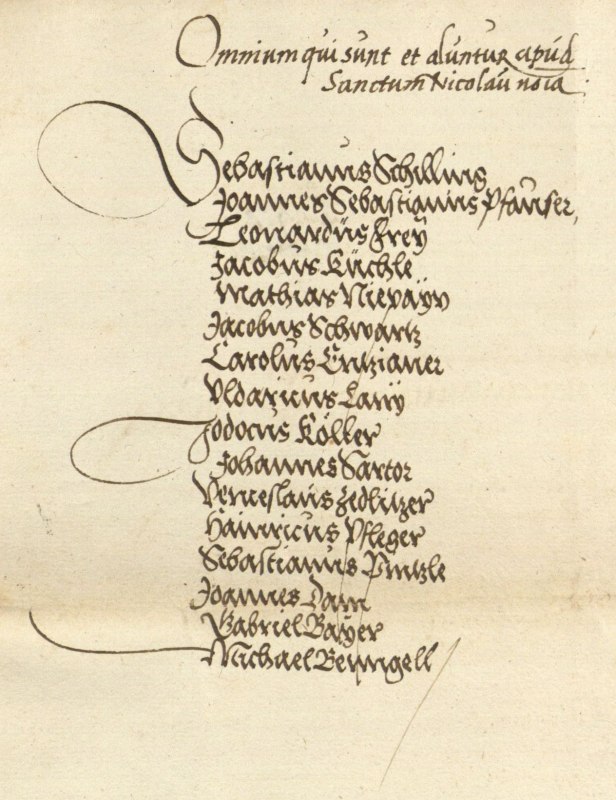 Omnium qui sunt et aluntur apud
Sanctum Nicolaū noīa
Sebastianus Schilling
Joannes Sebastianus Pfauser,
Leonardus Frey
Jacobus Küchle
Mathias
Jacobus Schwartz
Carolus Entzianer
Vldaricus Lany
Jodocus Köller
Johannes Sartor
Venceslaus Zedlitzer
Hainricus Pfleger
Sebastianus Printzle
Joannes Dam
Gabriel Bayer
Michael